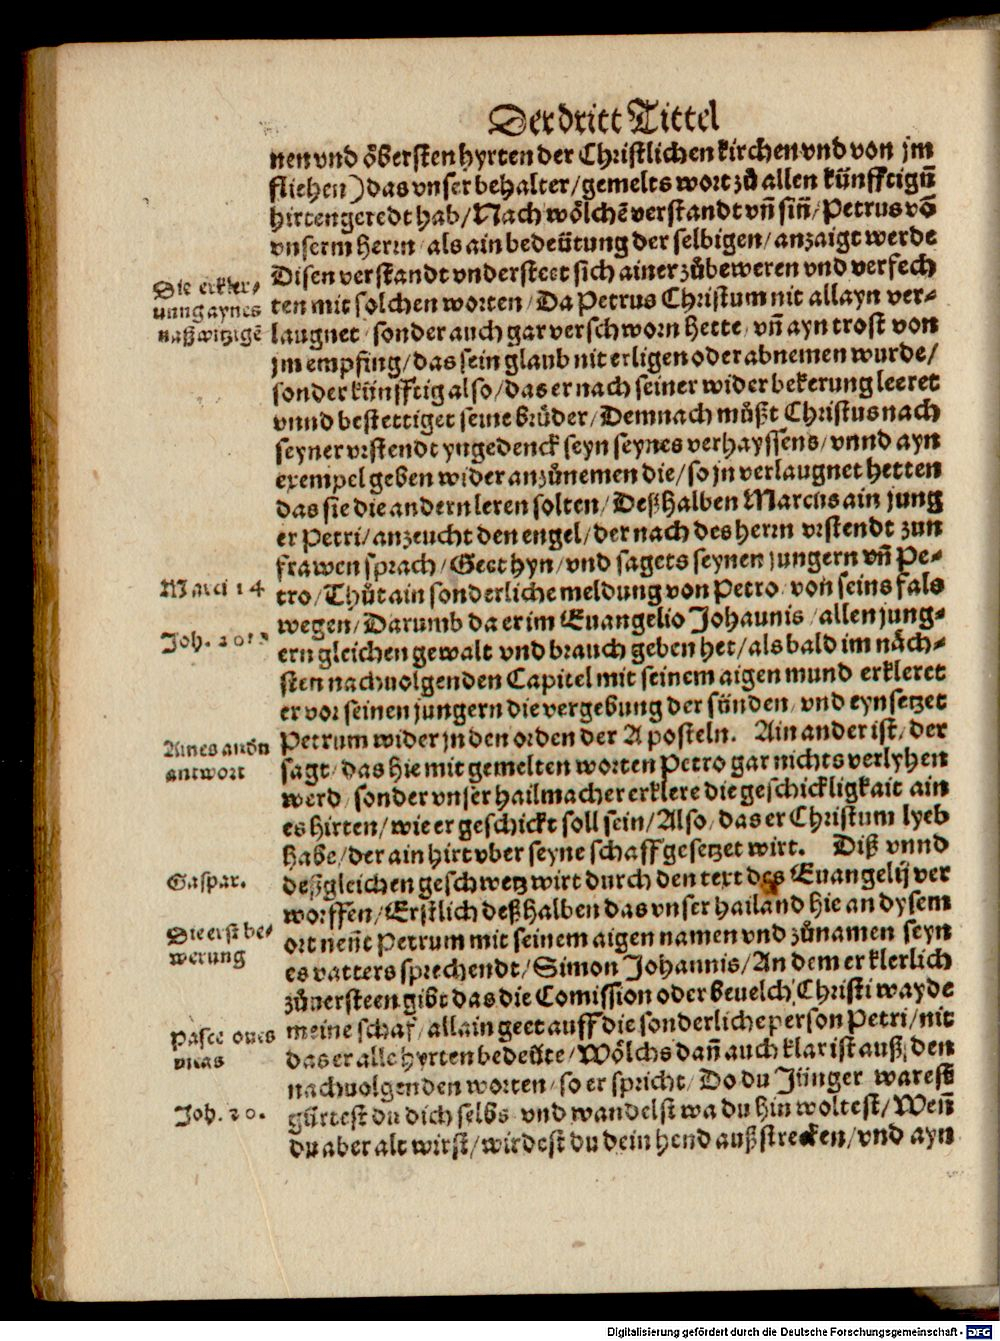 Der dritt Tittel
nen vnd öbersten hyrten der Christlichen kirchen vnd von jm
fliehen) das vnser behalter/ gemelts wort zů allen künfftigū
hirten geredt hab/ Nach wölchē verstandt vn̄ sin̄/ Petrus vō
vnserm herrn/ als ain bedeütung der selbigen/ anzaigt werde
Disen verstandt vndersteet sich ainer zůbeweren vnd verfech
ten mit solchen worten/ Da Petrus Christum nit allayn ver-
laugnet/ sonder auch gar verschworn hette/ vn̄ ayn trost von
jm empfing/ das sein glaub nit erligen oder abnemen wurde/
sonder künfftig also/ das er nach seiner widerbekerung leeret
vnnd bestettiget seine brůder/ Demnach můßt Christus nach
seyner vrstendt yngedenck seyn seynes verhayssens/ vnnd ayn
exempel geben wider anzůnemen die/ so jn verlaugnet hetten
das sie die andern leren solten/ Deßhalben Marcus ain jung
er Petri/ anzeucht den engel/ der nach des herrn vrstendt zun
frawen sprach/ Geet hyn/ vnd sagets seynen jungern vn̄ Pe-
tro/ Thůt ain sonderliche meldung von Petro/ von seins fals
wegen/ Darumb da er im Euangelio Johannis/ allen jung-
ern gleichen gewalt vnd brauch geben het/ als bald im näch-
sten nachuolgenden Capitel mit seinem aigen mund erkleret
er vor seinen jungern die vergebung der sünden/ vnd eynsetzet
Petrum wider jn den orden der Aposteln. Ain ander ist/ der
sagt/ das hie mit gemelten worten Petro gar nichts verlyhen
werd/ sonder vnser hailmacher erklere die geschickligkait ain
es hirten/ wie er geschickt soll sein/ Also/ das er Christum lyeb
habe/ der ain hirt vber seyne schaff gesetzet wirt. Diß vnnd
deßgleichen geschwetz wirt durch den text des Euangelij ver
worffen/ Erstlich deßhalben das vnser hailand hie an dysem
ort nen̄t Petrum mit seinem aigen namen vnd zůnamen seyn
es vatters sprechendt/ Simon Johannis/ An dem er klerlich
zůuersteen gibt das die Comission oder beuelch Christi wayde
meine schaf/ allain geet auff die sonderliche person Petri/ nit
das er alle hyrten bedeüte/ Wölchs dan̄ auch klar ist auß den
nachuolgenden worten/ so er spricht/ Do du Jünger warest
gürtest du dich selbs vnd wandelst wa du hin woltest/ Wen̄
du aber alt wirst/ wirdest du dein hend außstrecken/ vnd ayn
Die erkler-
unng aynes
naßwitzigē
Marci 14
Joh. 20
Aines andn̄
antwort
Gaspar.
Die erst be-
werung
Pasce oues
meas
Joh. 20.
Digitalisierung gefördert durch die Deutsche Forschungsgemeinschaft - DFG